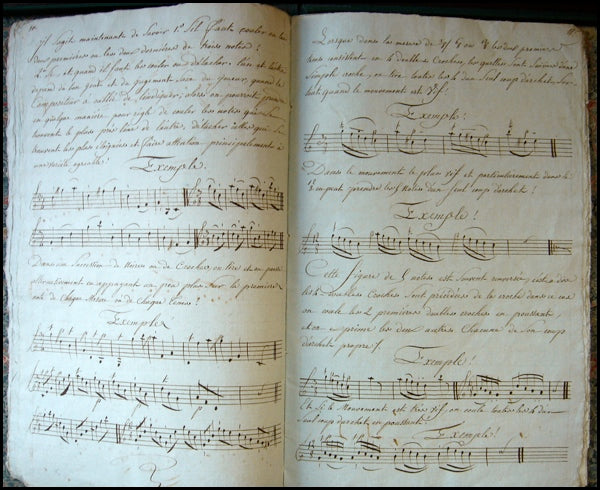 Il s'agit maintenant de savoir 1.º S'il faut couler en les
deux premieres ou les deux dernieres de trois notes!
2.º Si, et quand il faut les couler ou détacher.
depend du bon gout et du jugement Sain du joueur, quand le
Compositeur a oublié de l'indiquer; alors on pourroit prendre
en quelque maniere pour regle de couler les notes qui Se
trouvent le plus pres l'une de l'autre, detacher celles qui Se
trouvent les plus éloignées et faire attention principalement à
une varieté agreable!
Exemple.
Dans une Succession de Noires ou de Croches, on tire et on pousse
alternativement en appuyant un peu plus Sur la premiere
note de Chaque Mesure ou de Chaque tems!
Exemple
p p
Lorsque dans la mesure de les deux premiers
tems consistent en 4 doubles Croches, les quelles Sont Suivies d'une
Simple croche, on tire toutes les 4 d'un Seul coup d'archet, Sur-
tout quand le mouvement est vif!
Exemple!
Dans le mouvement le plus vif et particulierement dans le
3/8 on peut prendre les 5 Notes d'un Seul coup d'archet!
Exemple!
Cette figure de 5 notes est Souvent renversée, c'est à dire
les 4 doubles Croches Sont précédées de la croche dans ce cas
on coule les 2 premieres doubles croches en poussant,
et on exprime les deux autres Chacune de Son coup
d'archet propre!
Exemple!
Et Si le Mouvement est très vif, on coule toutes les 4 d'un
Seul coup d'archet, en poussant
Exemple!